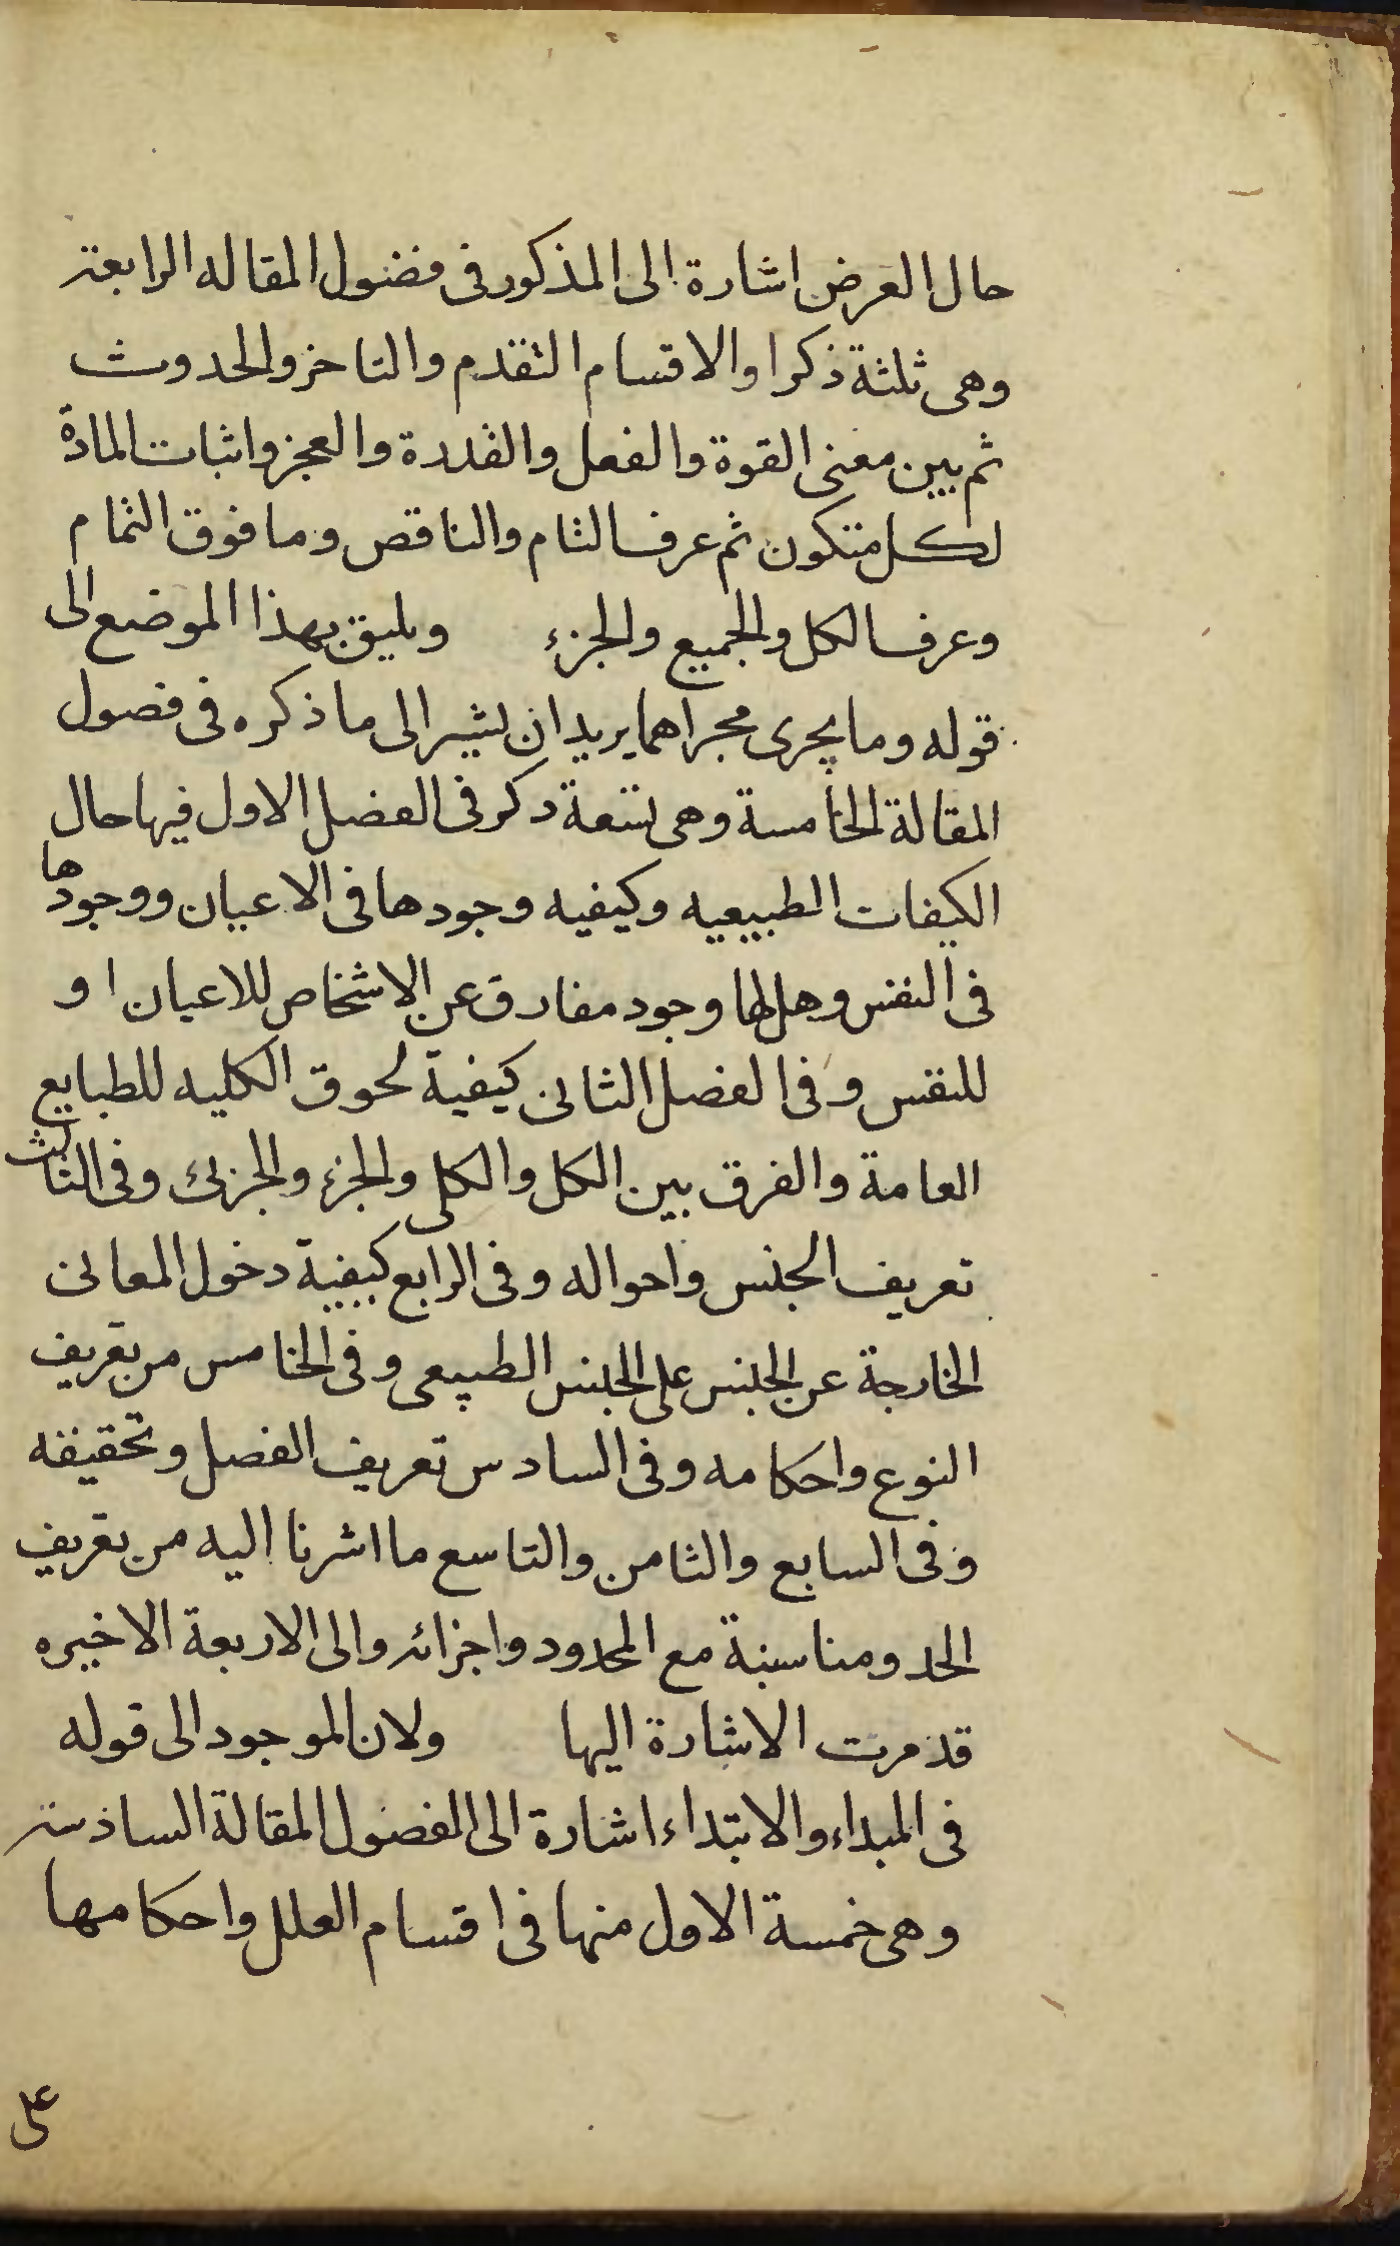 حال العرض اشارة الى المذكور فى فضول المقاله الرابعة
وهى ثلثة ذكرا والاقسام التقدم والتاخر والحدوث
ثم بين معنى القوة والفعل والقدرة والعجز واثبات المادة
لكل متكون ثم عرف التام والناقص وما فوق التمام
وعرف الكل والجميع والجزء ويليق بهذا الموضع الى
قوله وما يجرى مجراهما يريد ان يشير الى ما ذكره فى فصول
المقالة الخامسة وهى تسعة ذكر فى الفصل الاول فيها حال
الكيفات الطبيعيه وكيفيه وجودها فى الاعيان ووجودها
فى النفس وهل لها وجود مفارق عن الاشخاص للاعيان او
للنفس وفى الفصل الثانى كيفية لحوق الكليه للطبايع
العامة والفرق بين الكل والكلى والجزء والجزئ وفى الثالث
تعريف الجنس واحواله وفى الرابع كيفية دخول المعانى
الخارجة عن الجنس على الجنس الطبيعى وفى الخامس من تعريف
النوع واحكامه وفى السادس تعريف الفصل وتحقيقه
وفى السابع والثامن والتاسع ما اشرنا اليه من تعريف
الحد ومناسبة مع المحدود واجزائه والى الاربعة الاخيره
قد مرت الاشارة اليها ولان الموجود الى قوله
فى المبداء والابتداء اشارة الى الفضول المقالة السادسة
وهى خمسة الاول منها فى اقسام العلل واحكامها
على